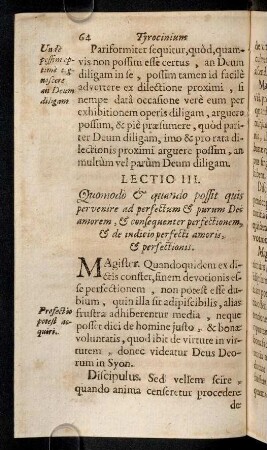 64 Tyrocinium
Pariformiter sequitur, quòd, quam-
vis non possim esse certus, an Deum
diligam in se, possim tamen id facilè
advertere ex dilectione proximi, si
nempe datâ occasione verè eum per
exhibitionem operis diligam, arguere
possum, & piè præsumere, quòd pari-
ter Deum diligam, imo & pro rata di-
lectionis proximi arguere possim, an
multùm vel parùm Deum diligam.
diligam
LECTIO III.
Quomodo & quando possit quis
pervenire ad perfectum & purum Dei
amorem, & consequenter perfectionem,
& de indicio perfecti amoris,
& perfectionis.
Magister. Quandoquidem ex di-
ctis constet, finem devotionis es-
se perfectionem, non potest esse du-
bium, quin illa sit adipiscibilis, alias
frustra adhiberentur media, neque
posset dici de homine justo, & bonæ
voluntatis, quod ibit de virtute in vir-
tutem, donec videatur Deus Deo-
rum in Syon.
Perfectio
potest ac-
quiri.
Discipulus. Sed vellem scire,
quando anima censeretur procedere
de